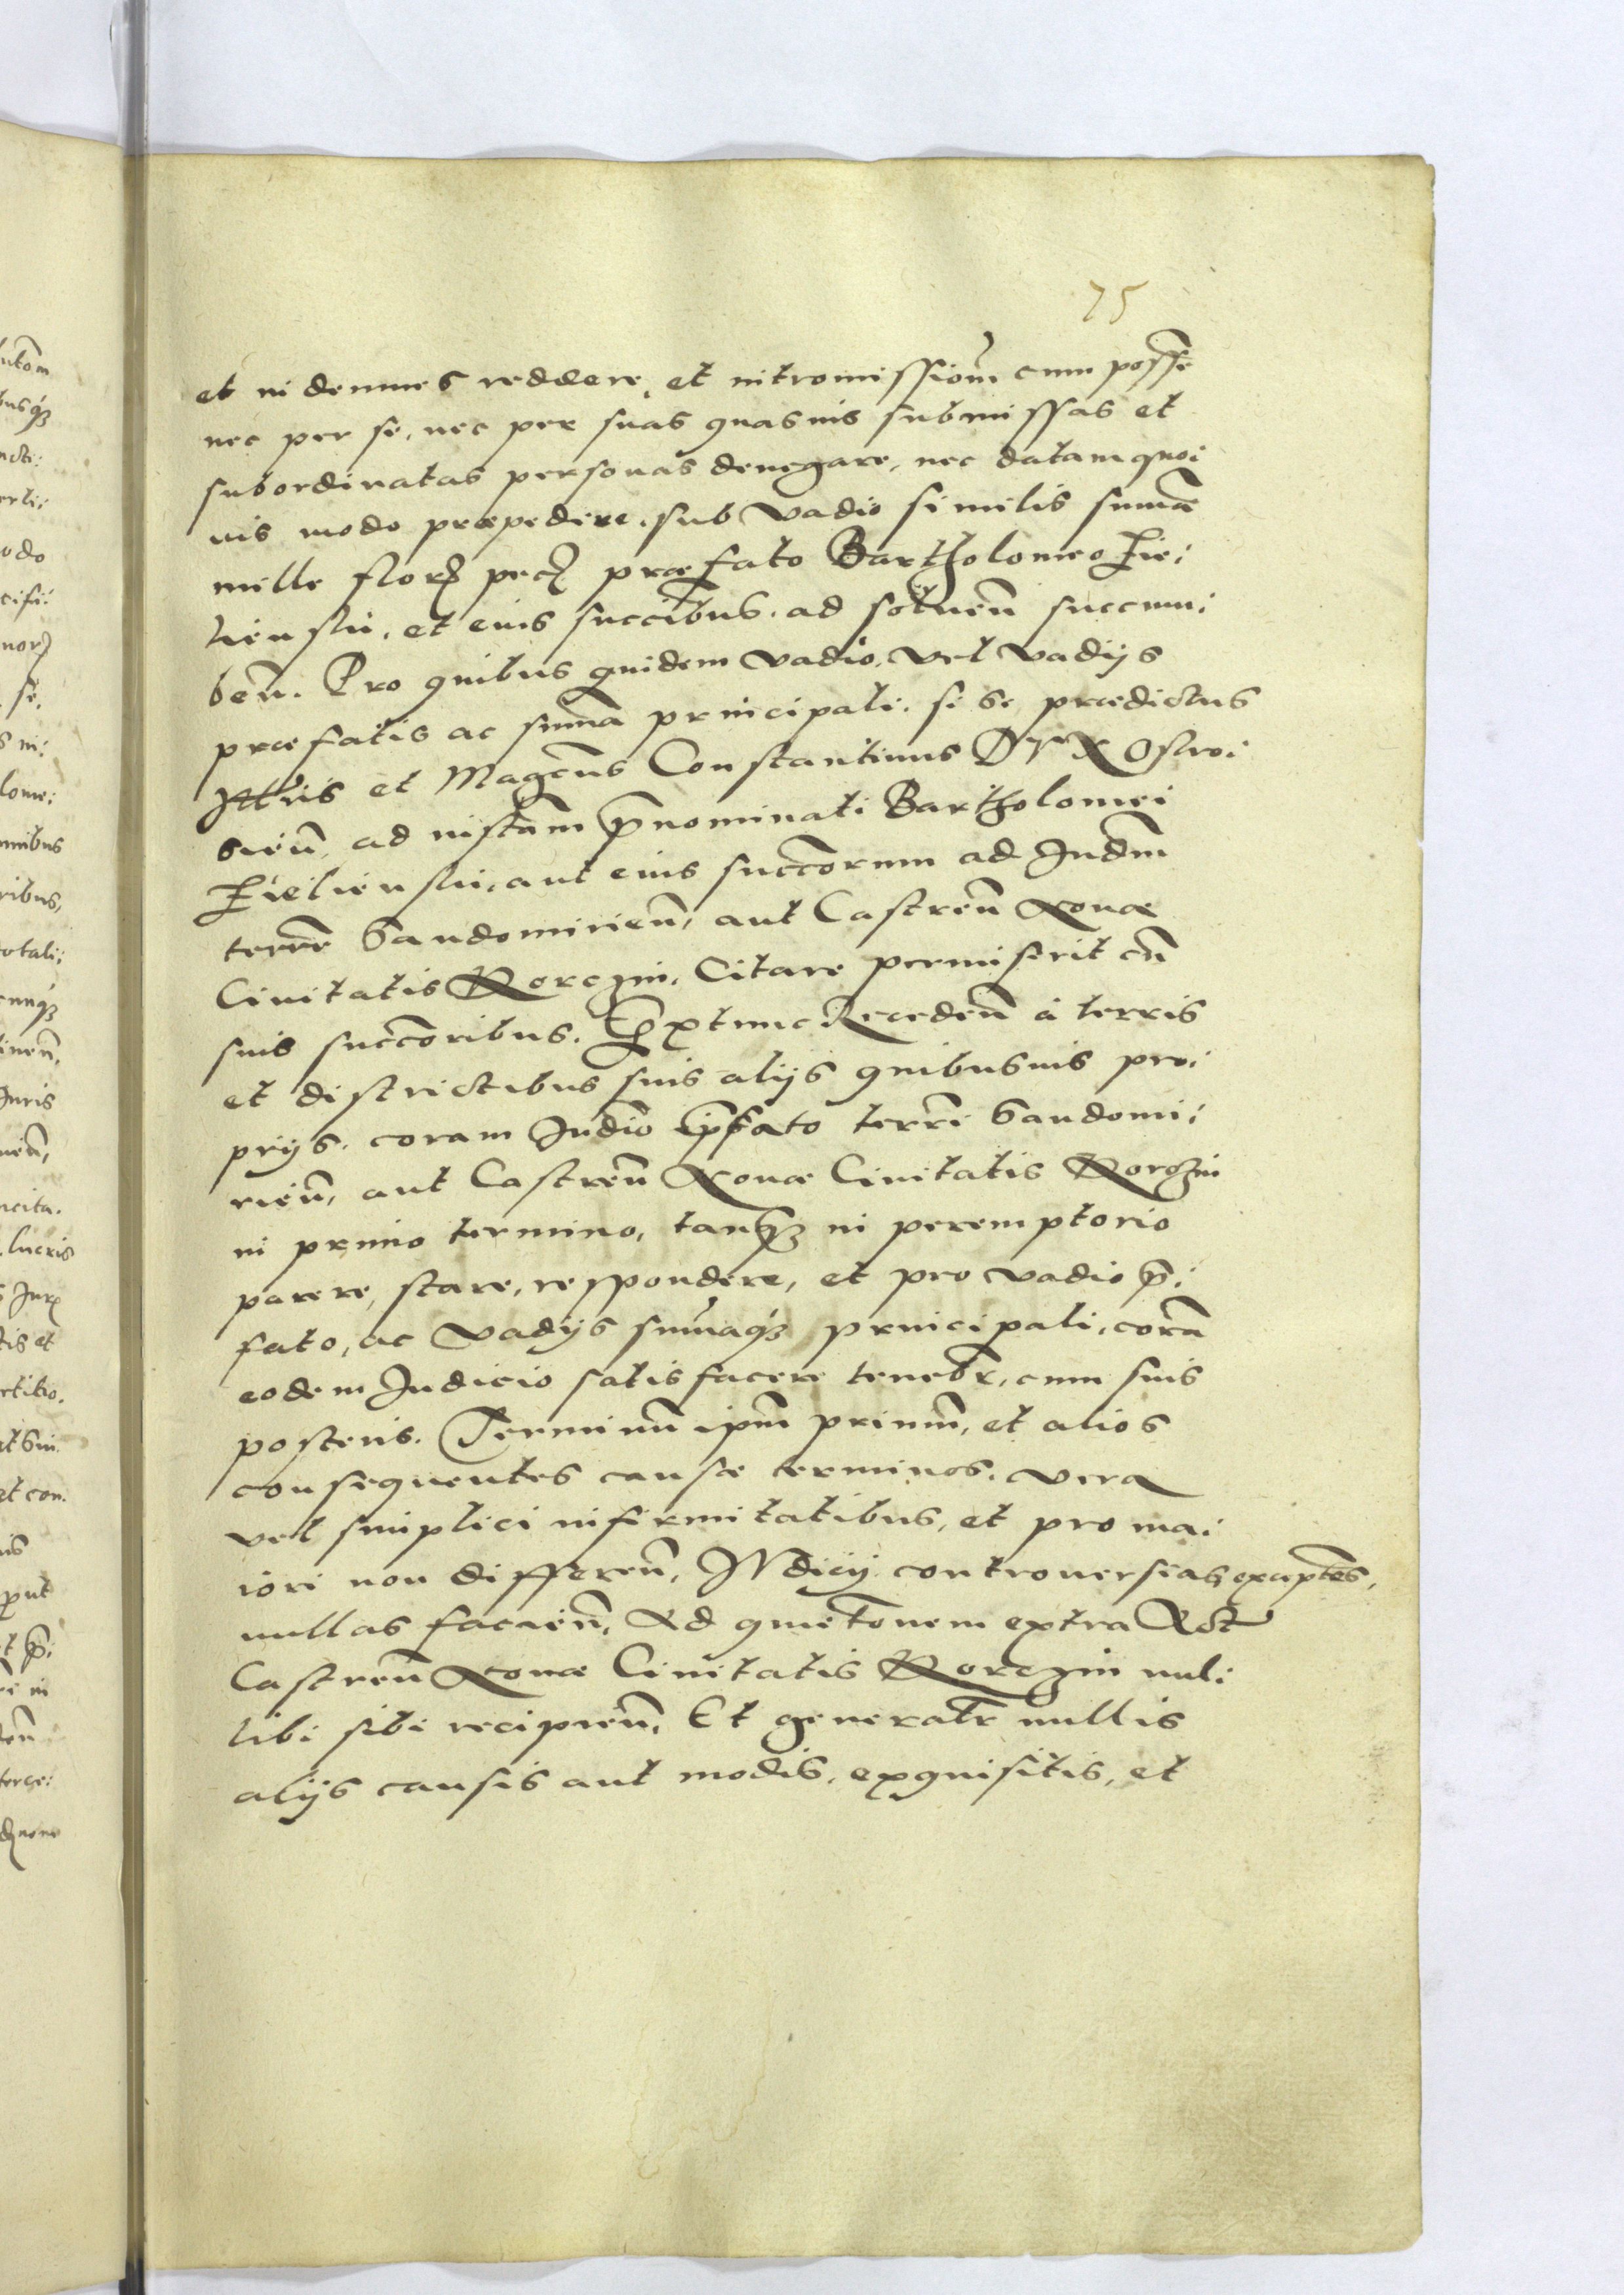 75
et indemnes reddere, et intromissiom̃ cum posse
nec per se, nec per suas quasuis submissas et
subordinatas personas denegare, nec datam quoi
uis modo præpedire. sub vadio similis sum̃æ
mille flor pec præfato Bartholomeo Zie:
lien ski, et eius succibus. ad soluen̄ succum:
ben̄. Pro quibus quidem vadio, vel vadijs
præfatis ac sum̃a principali. si se prædictus
Illris et Magcus Constantinus Dux Ostro:
sien̄, ad instam p̄nominati Bartholomei
Zielienski, aut eius succorum ad Iudm
terrē Sandomirien̄, aut Castren̄ Nouæ
Ciuitatis Korczin, Citare permiserit cū
suis succoribus. Extunc Receden̄ à terris
et districtibus suis alijs quibusuis pro:
prijs. coram Iudio p̄fato terrī Sandomi:
rien̄, aut Castren̄ Nouæ Ciuitatis Korczin
in primo termino, tanq̄ in peremptorio
parere, stare, respondere, et pro vadio p̄:
fato, ac vadijs sum̃aq principali, corā
eodem Iudicio satisfacere tenebr, cum suis
posteris. Terminū ipm primum, et alios
consequentes causæ terminos. vera
vel simplici infirmitatibus, et pro ma:
iori non differen̄, Iudicij controuersias, exceptes,
nullas facien̄, Ad quietonem extra Act
Castren̄ Nouæ Ciuitatis Korczin nul:
libi sibi recipien̄, Et generalr nullis
alijs causis aut modis, exquisitis, et